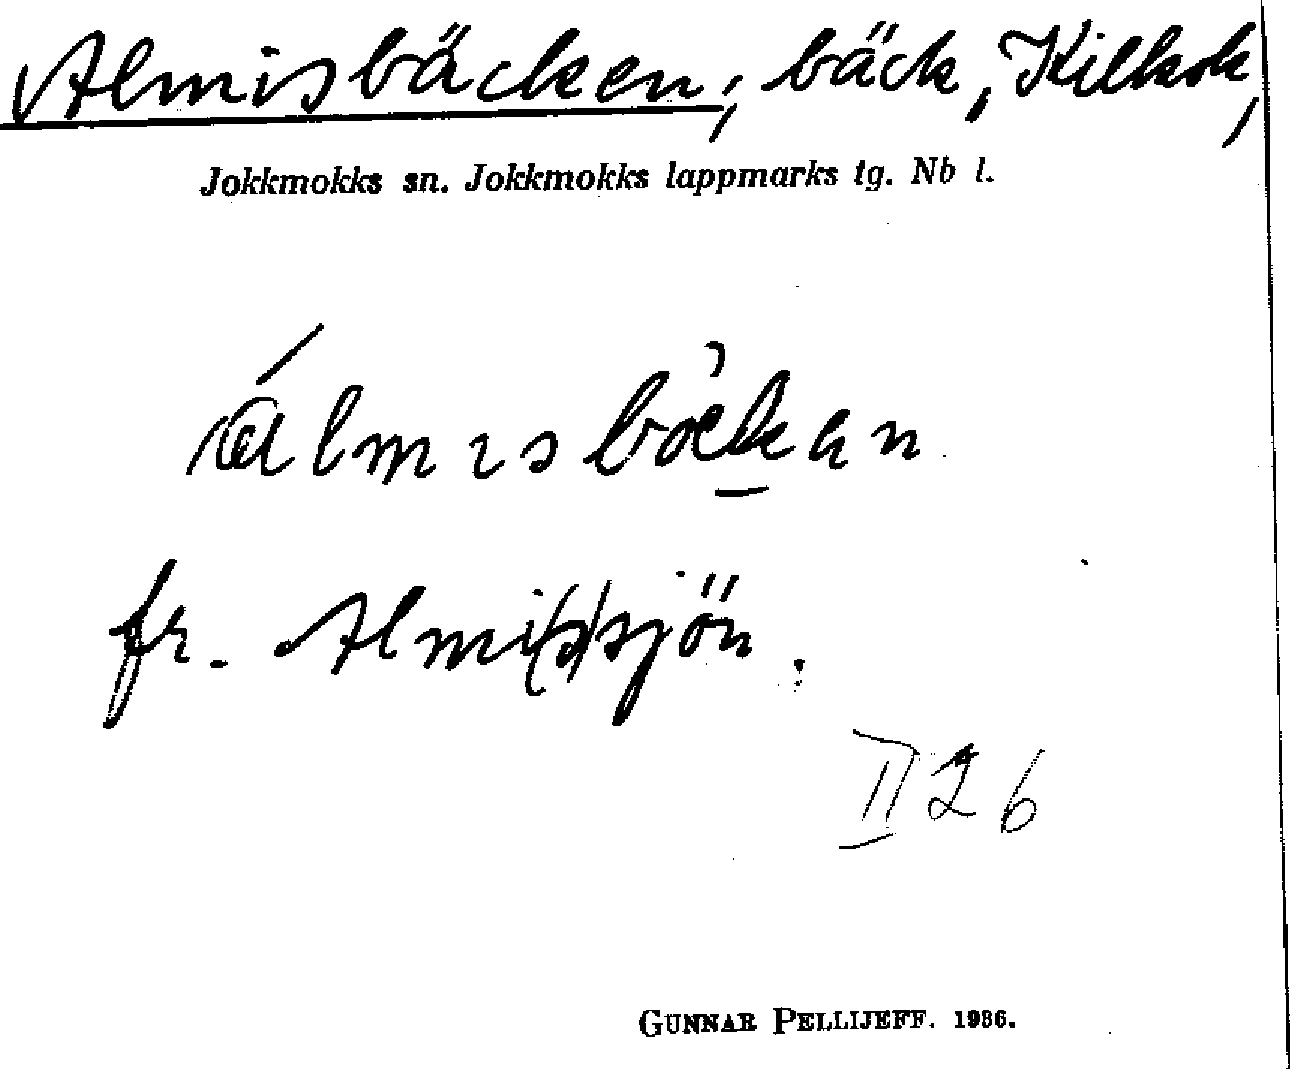 Almisbäcken, bäck, Kilkok,
Jokkmokks sn. Jokkmokks lappmarks tg. Nb l.
fr. Almi(s)sjön.
II 26
GUNNAR PELLIJEFF. 1936.